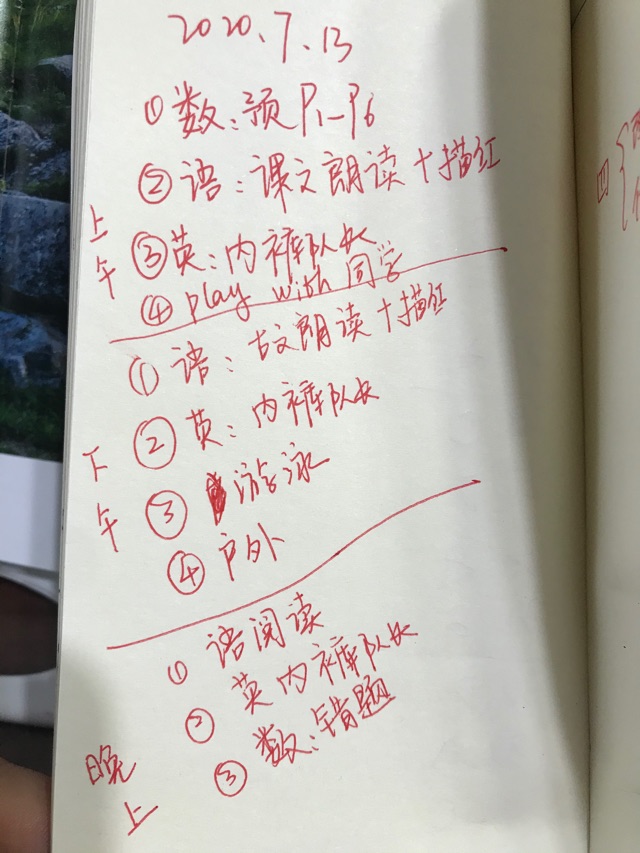 2020.7.13
①数:预P1-P6
②语:课文朗读+描红
上午
③英:内裤队长
④play with 同学
①语:古文朗读+描红
②英:内裤队长
下午
③游泳
④户外
①语阅读
②英内裤队长
③数:错题
晚上
四{